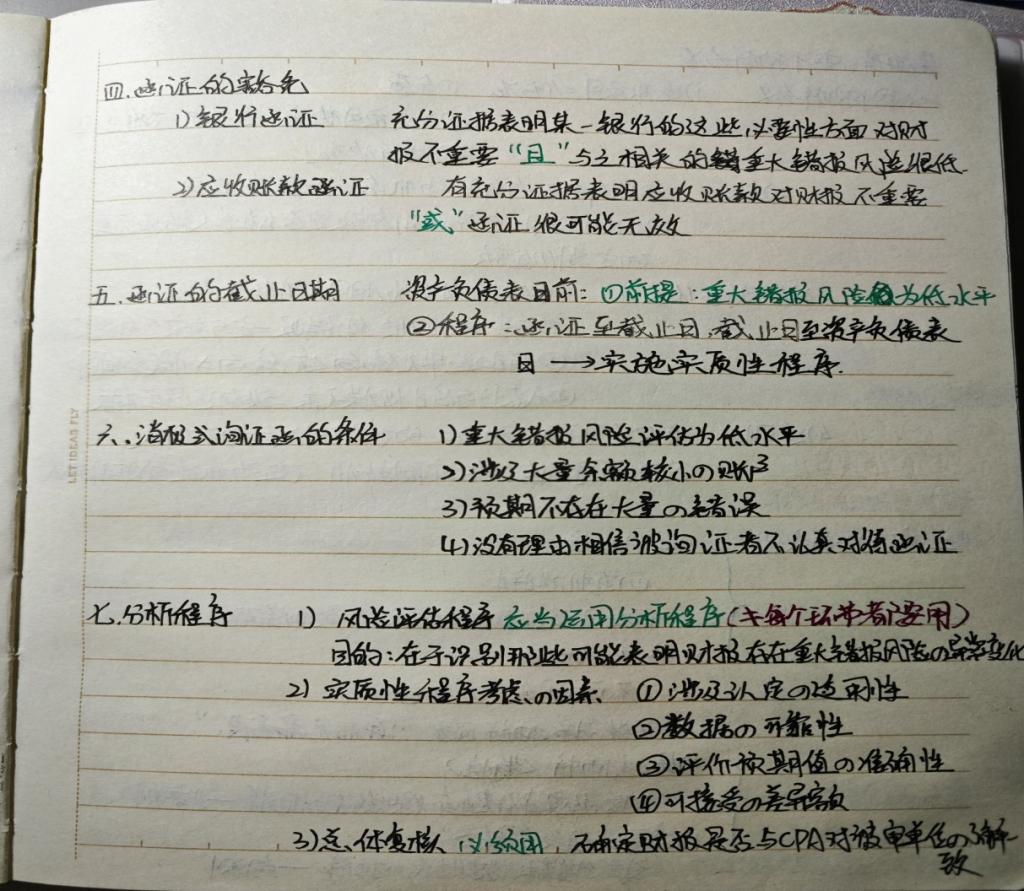 四.函证的豁免
1)银行函证 充分证据表明某一银行的这些必要性方面对财
报不重要“且”与之相关的重大错报风险很低.
2)应收账款函证 有充分证据表明应收账款对财报不重要
“或”函证很可能无效
五.函证的截止日期 资产负债表日前:①前提:重大错报风险为低水平
②程序:函证至截止日,截止日至资产负债表
日→实施实质性程序.
LET IDEAS FLY
六.消极式询证函的条件 1)重大错报风险评估为低水平
2)涉及大量余额较小の账户
3)预期不存在大量の错误
4)没有理由相信被询证者不认真对待函证
七.分析程序 1)风险评估程序应当运用分析程序(非每个环节都要用)
目的:在于识别那些可能表明财报存在重大错报风险の异常变化
2)实质性程序考虑の因素 ①涉及认定の适用性
②数据の可靠性
③评价预期值の准确性
④可接受の差异额
3)总体复核 必须用,确定财报是否与CPA对被审单位の了解一
致